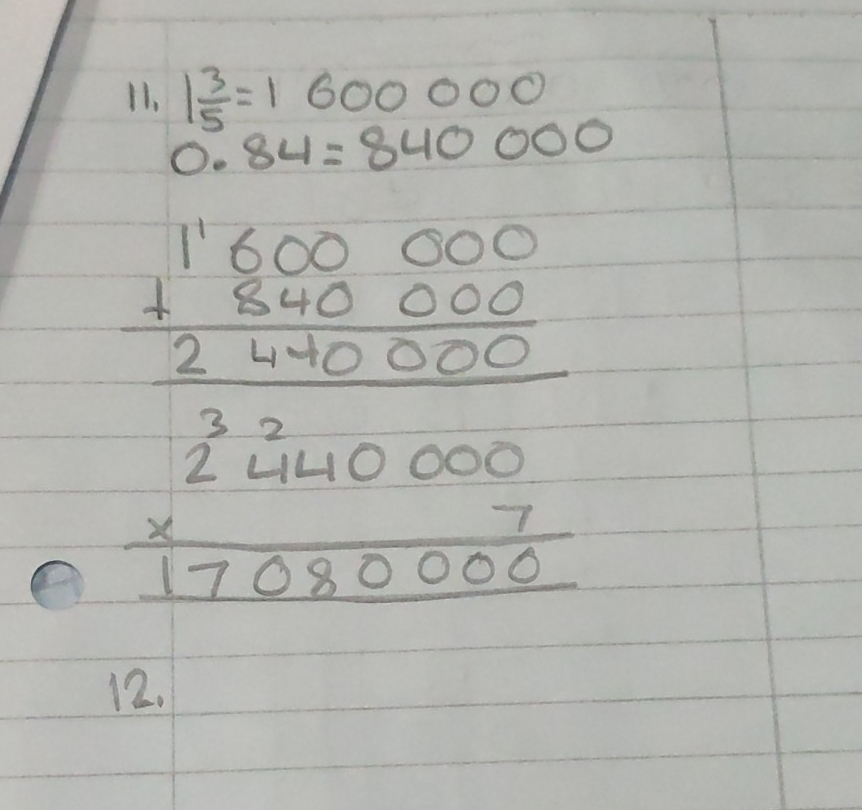 11. 1 3/5 = 1 600 000
0.84 = 840 000
1¹ 600 000
+ 840 000
2 440 000
3 2
2 440 000
× 7
17080000
12.